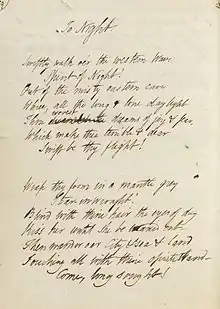 To Night
Swiftly walk oer the western wave
Spirit of Night!
Out of the misty eastern cave
Where, all the long & lone daylight
wovest
Thou dreams of joy & fear,
Which make thee terrible & dear
Swift be thy flight!
Wrap thy form in a mantle grey
Star-inwrought!
Blind with thine hair the eyes of day
Kiss her until she be wearied out—
Then wander oer City & Sea & Land
Touching all with thine opiate wand—
Come, long sought!